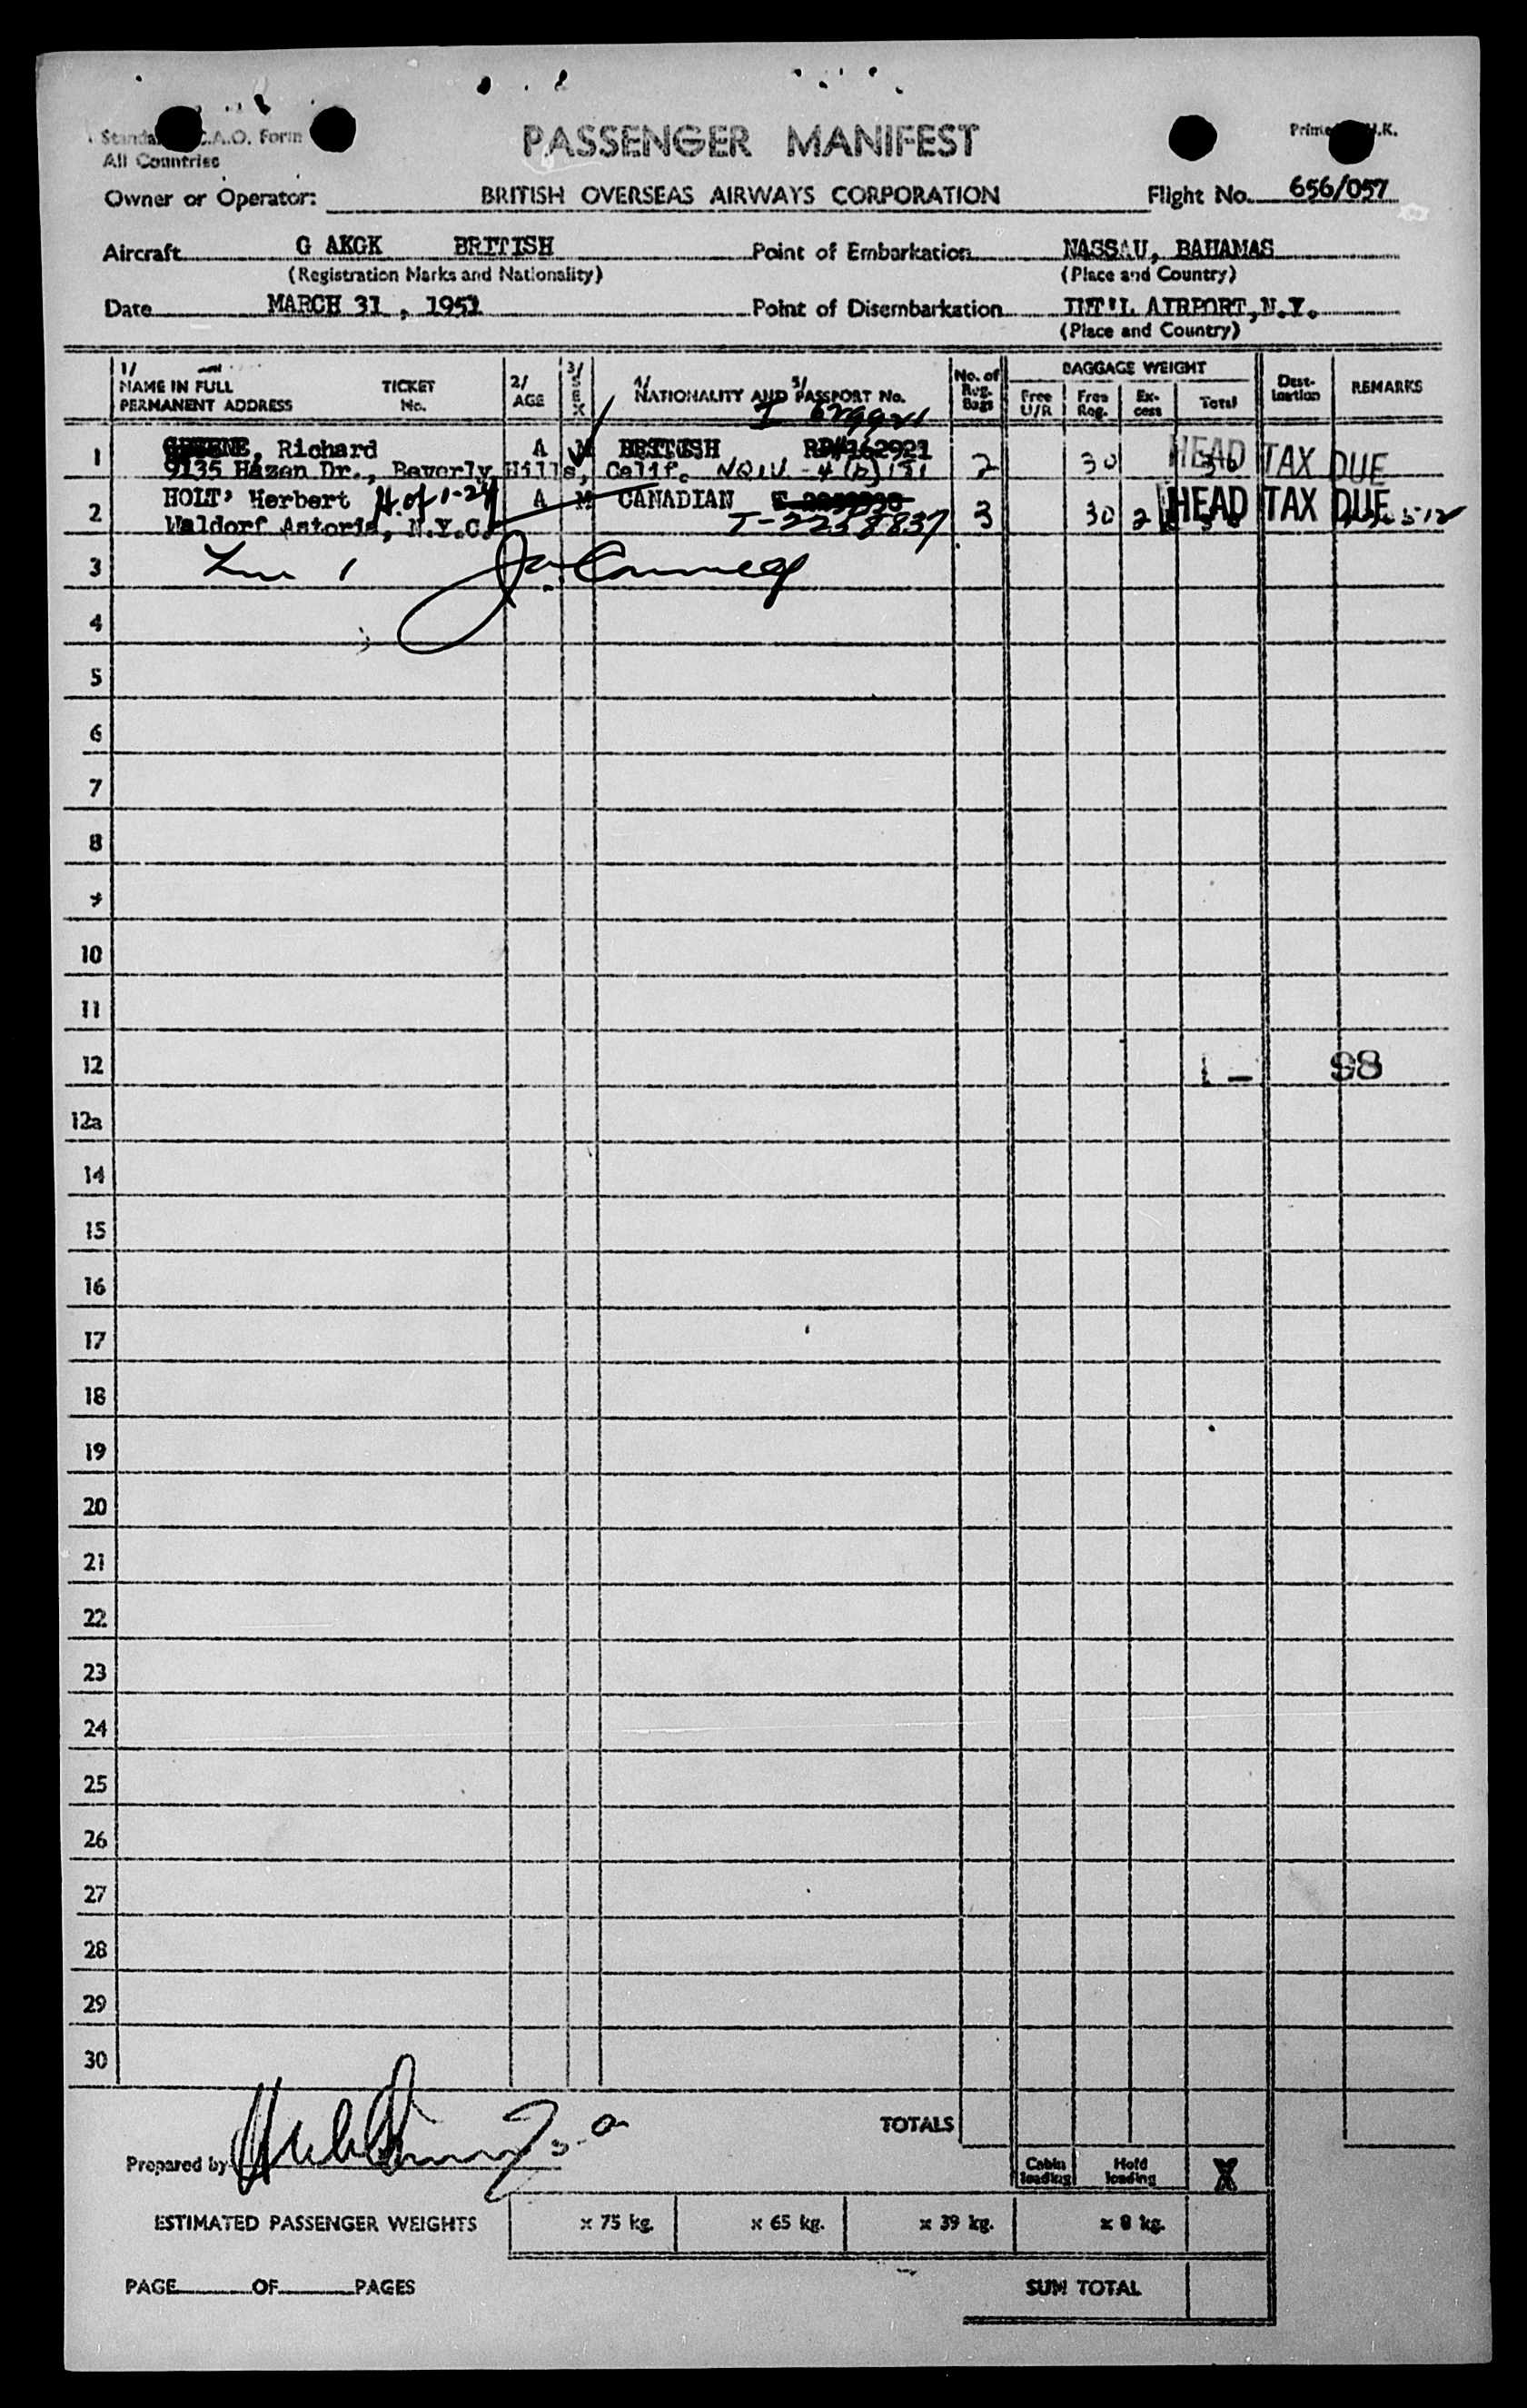 All Countries
PASSENGER MANIFEST
Owner or Operator: BRITISH OVERSEAS AIRWAYS CORPORATION Flight No. 656/057
Aircraft G AKGK BRITISH Point of Embarkation NASSAU, BAHAMAS
(Registration Marks and Nationality) (Place and Country)
Date MARCH 31, 1951 Point of Disembarkation INT'L AIRPORT, N.Y.
(Place and Country)
1/ NAME IN FULL PERMANENT ADDRESS TICKET No. 2/ AGE 3/ SEX 4/ 5/ NATIONALITY AND PASSPORT No. No. of Reg. Bags BAGGAGE WEIGHT Free U/R Free Reg. Excess Total Destination REMARKS
1 GREENE, Richard A M BRITISH 2 30 30 HEAD TAX DUE
9135 Hazen Dr., Beverly Hills, Calif.
2 HOLT, Herbert H. of 1-24 A M CANADIAN 3 30 2 HEAD TAX DUE
Waldorf Astoria, N.Y.C. T-2258837
3
4
5
6
7
8
9
10
11
12 1 - 98
12a
14
15
16
17
18
19
20
21
22
23
24
25
26
27
28
29
30
TOTALS
Prepared by
Cabin loading Hold loading X
ESTIMATED PASSENGER WEIGHTS x 75 kg. x 65 kg. x 39 kg. x 8 kg.
PAGE OF PAGES SUM TOTAL